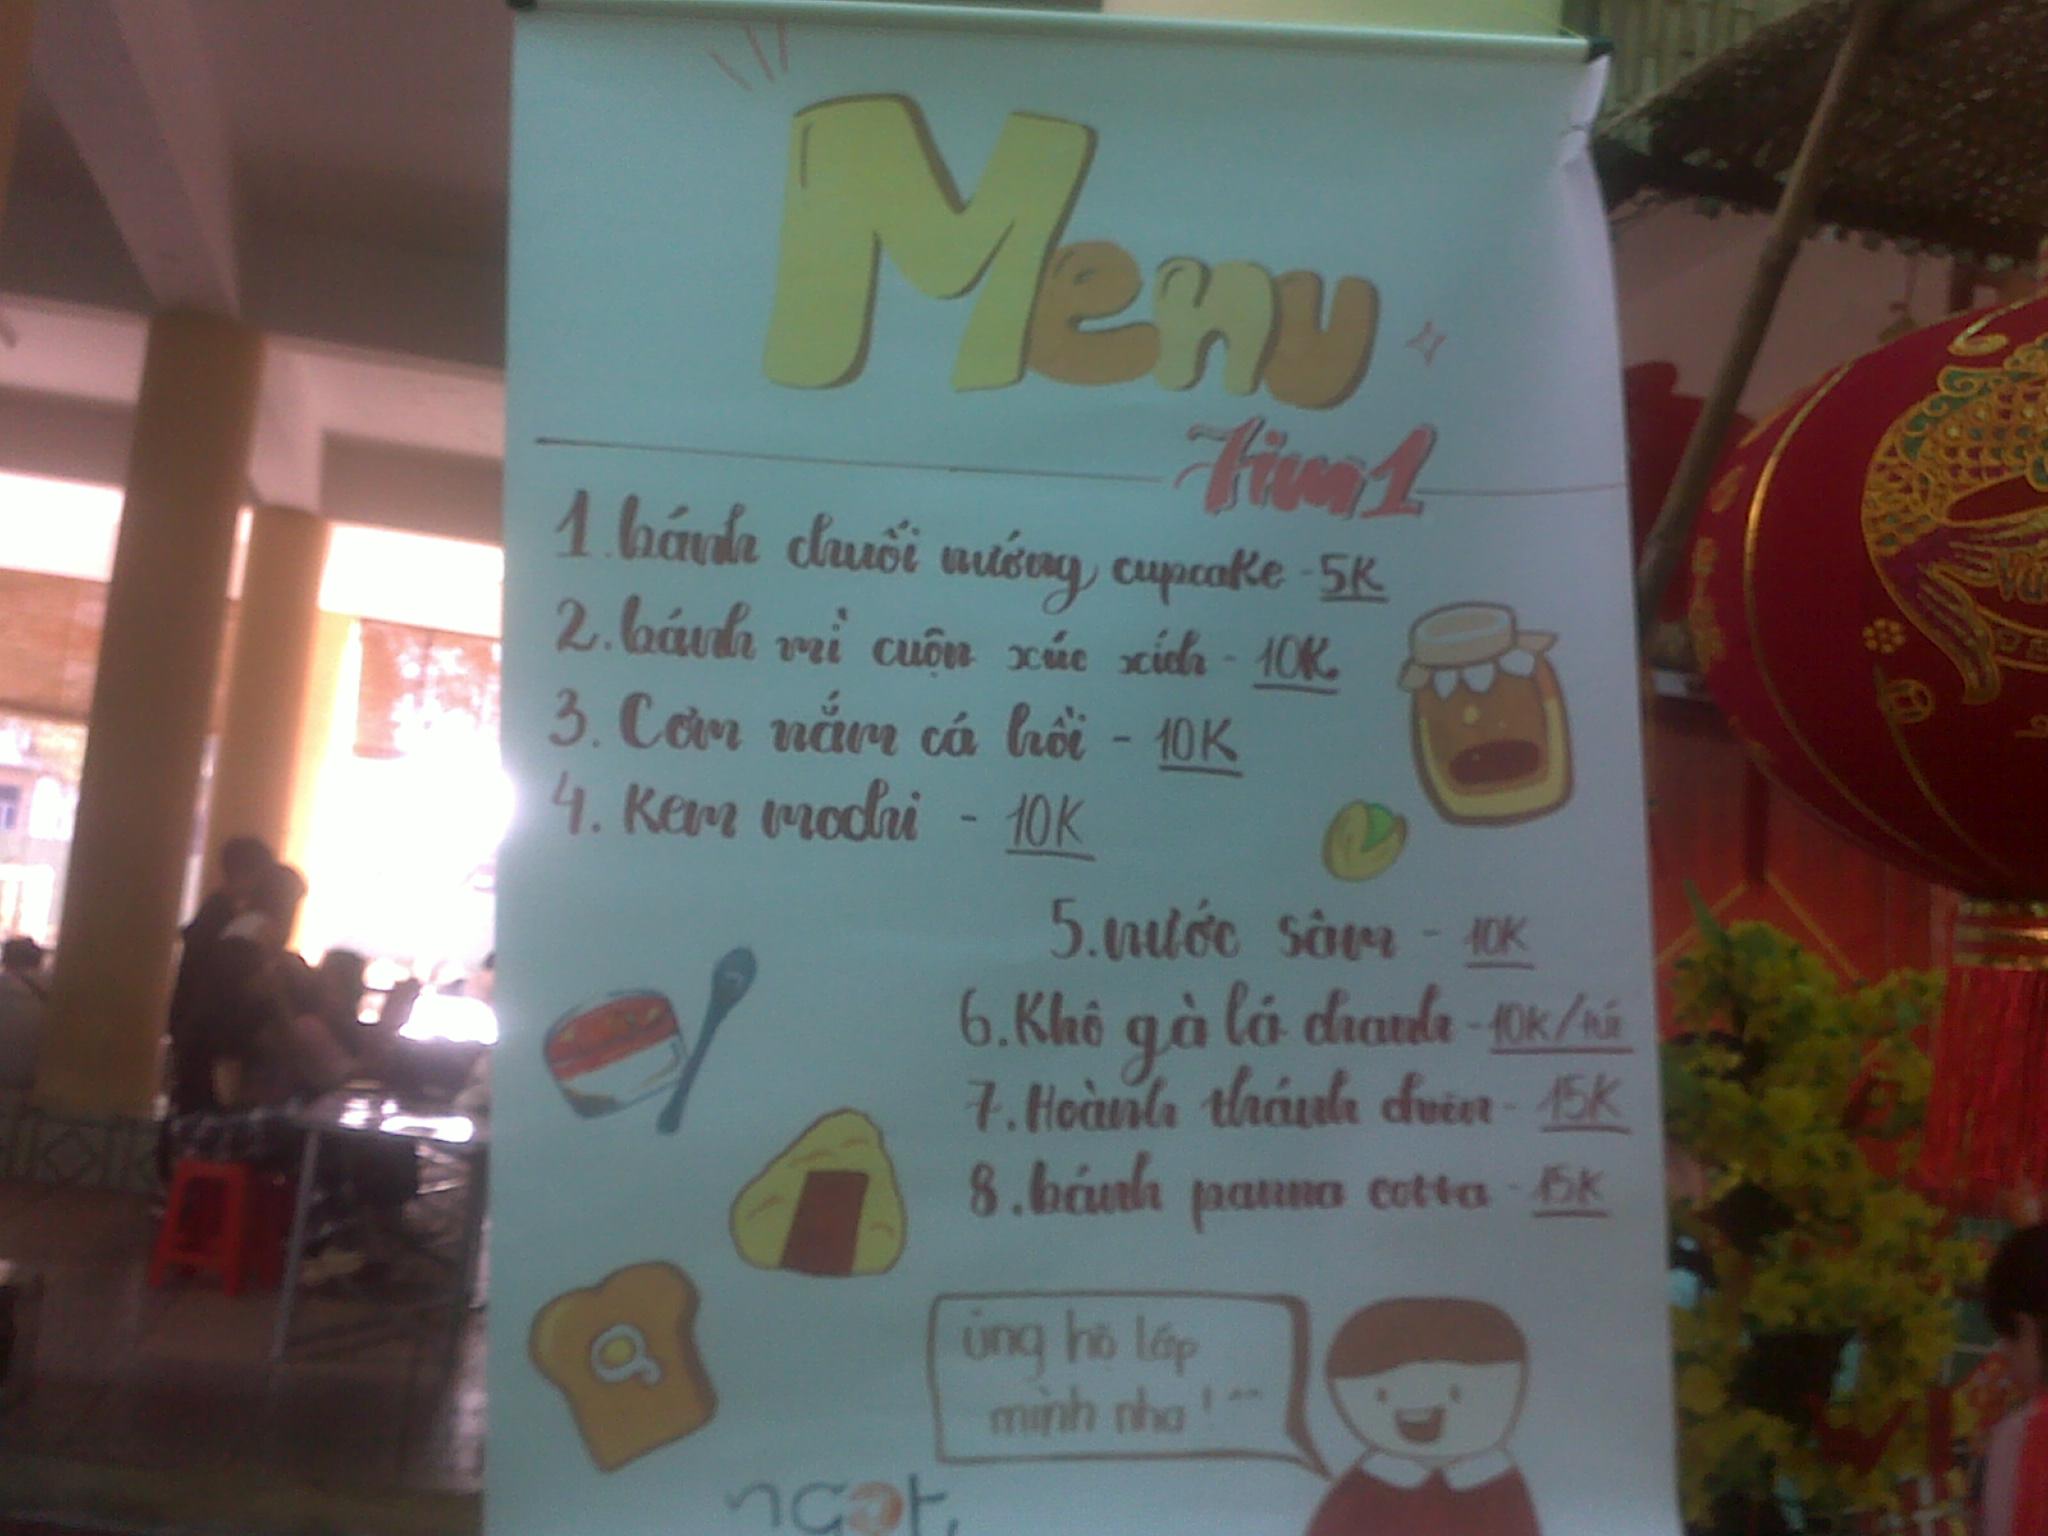 Menu
7im1
1. bánh chuối nướng cupcake - 5K
2. bánh mì cuộn xúc xích - 10K
3. Cơm nắm cá hồi - 10K
4. Kem mochi - 10K
5. nước sâm - 10K
6. Khô gà lá chanh - 10K/túi
7. Hoành thánh chiên - 15K
8. bánh panna cotta - 15K
ủng hộ lớp
mình nha! ^^
ngọt